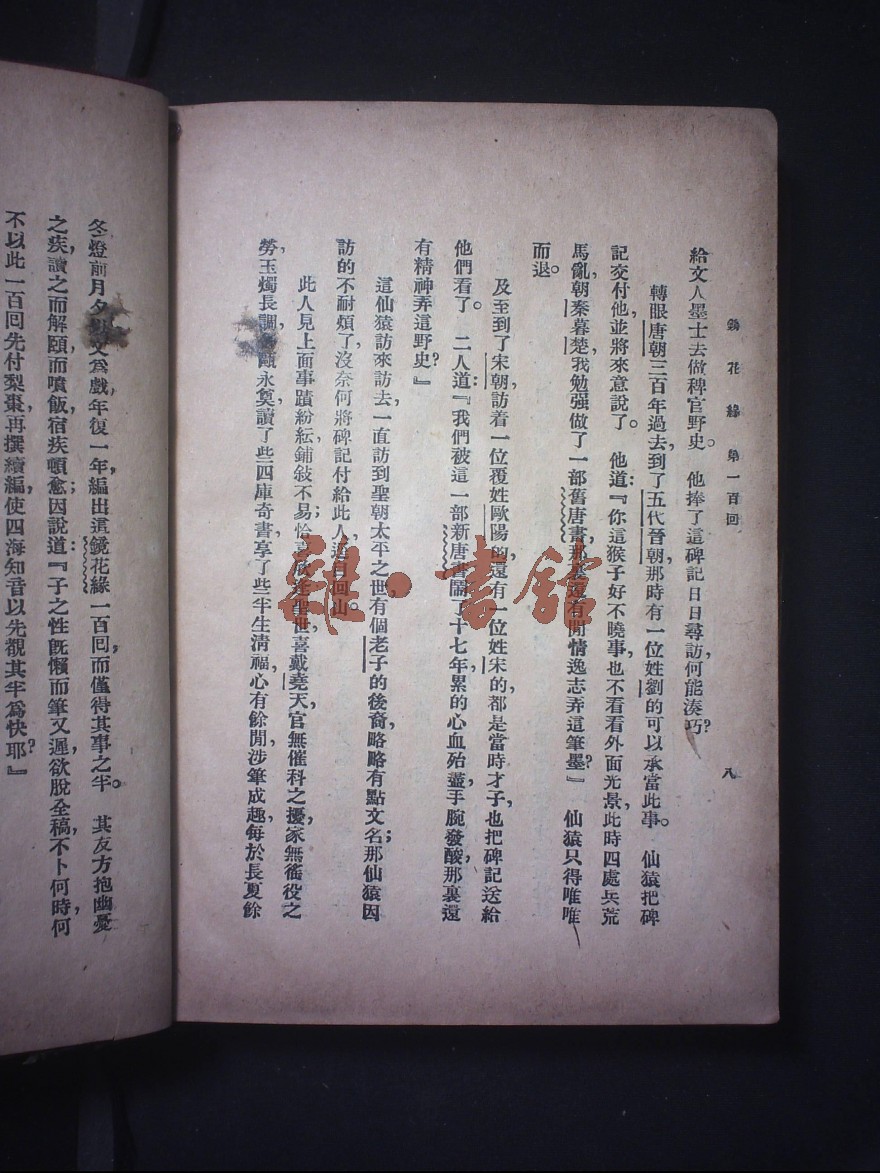 鏡花緣 第一百回
八
給文人墨士去做稗官野史。他捧了這碑記日日尋訪，何能湊巧？
轉眼唐朝三百年過去，到了五代晉朝，那時有一位姓劉的可以承當此事。仙猿把碑
記交付他，並將來意說了。他道：『你這猴子好不曉事，也不看看外面光景，此時四處兵荒
馬亂，朝秦暮楚，我勉强做了一部舊唐書，那裏還有閒情逸志弄這筆墨？』仙猿只得唯唯
而退。
及至到了宋朝，訪着一位覆姓歐陽的，還有一位姓宋的，都是當時才子，也把碑記送給
他們看了。二人道：『我們被這一部新唐書鬧了十七年，累的心血殆盡，手腕發酸，那裏還
有精神弄這野史？』
這仙猿訪來訪去，一直訪到聖朝太平之世，有個老子的後裔，略略有點文名；那仙猿因
訪的不耐煩了，沒奈何，將碑記付給此人，逕自回山。
此人見上面事蹟紛紜，鋪敍不易；恰喜欣逢聖世，喜戴堯天，官無催科之擾，家無徭役之
勞，玉燭長調，甌永奠，讀了些四庫奇書，享了些半生淸福，心有餘閒，涉筆成趣，每於長夏餘
冬，燈前月夕，文爲戲，年復一年，編出這鏡花緣一百回，而僅得其事之半。其友方抱幽憂
之疾，讀之而解頤，而噴飯，宿疾頓愈；因說道：『子之性旣懶而筆又遲，欲脫全稿，不卜何時；何
不以此一百回先付梨棗，再撰續編，使四海知音以先覩其半爲快耶？』
雜·書館